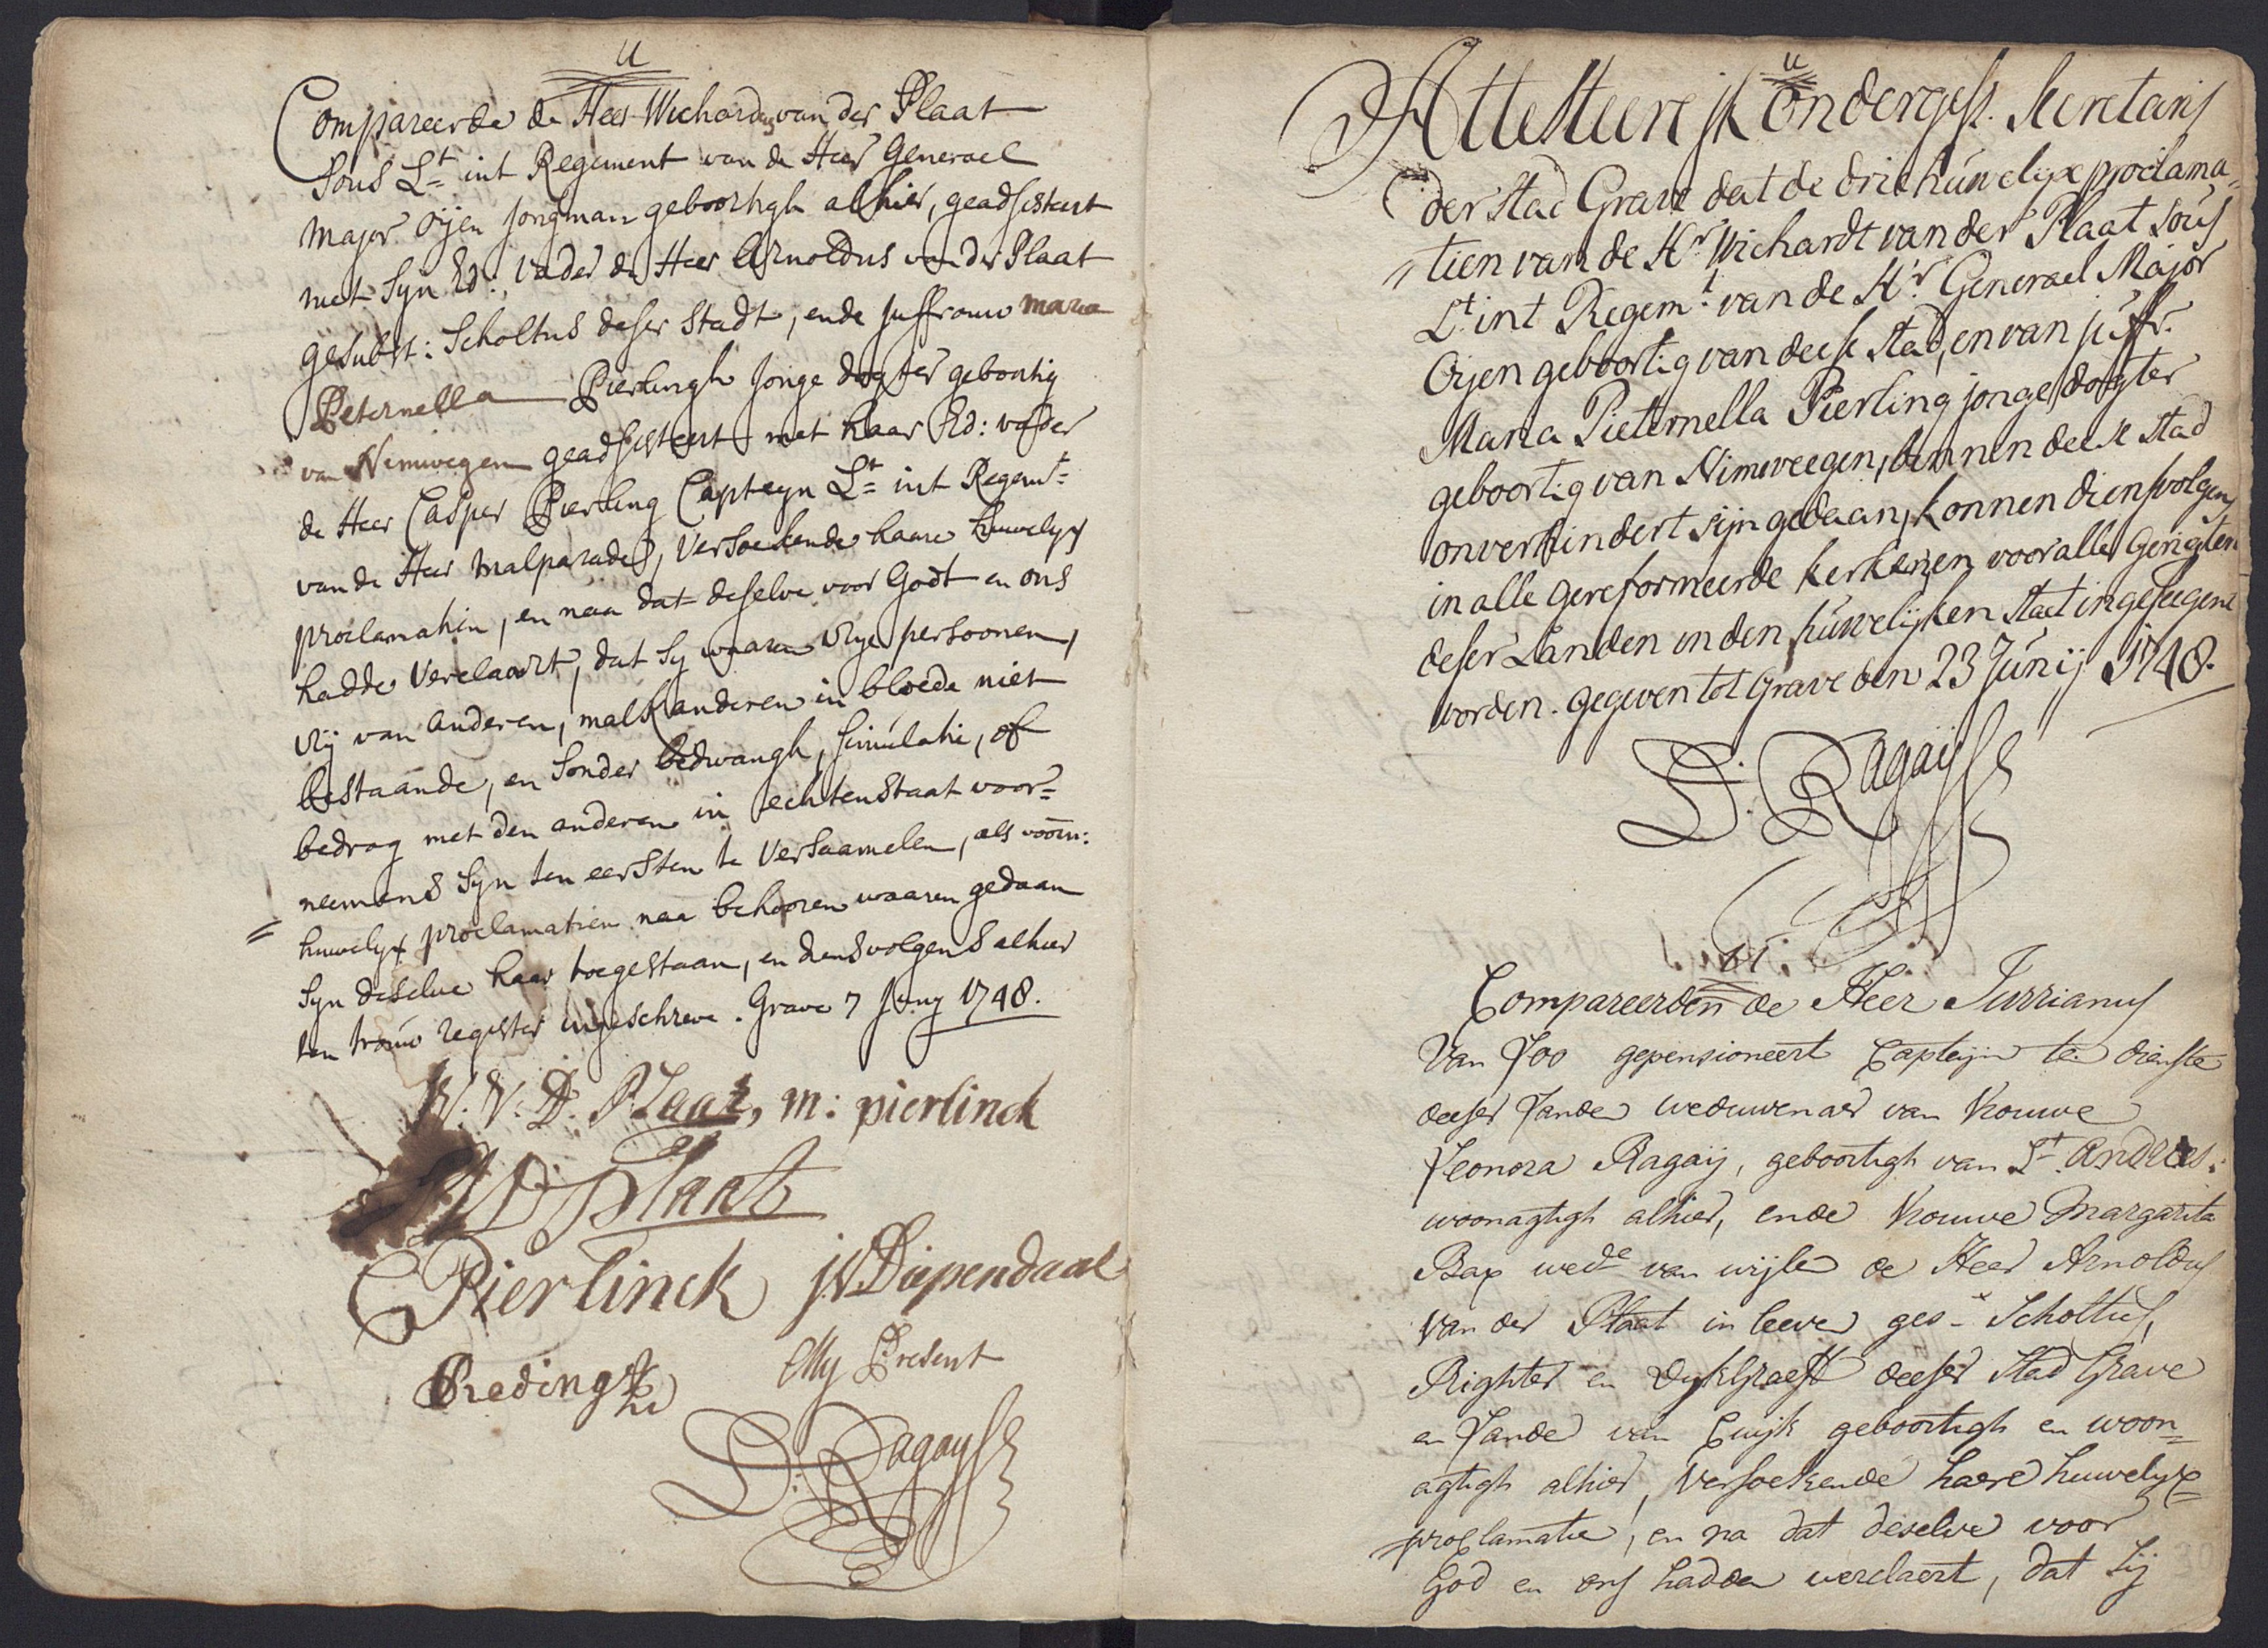 U
Compareerde de Heer Wichardus van der Plaat
Sous Lt. int Regement van de Heer Generael
Major Oijen jongman geboortigh alhier, geadsisteert
met Syn Ed: vader de Heer Arnoldus van der Plaat
gesubst: Scholtus deser Stadt, ende juffrouw maria
Peternella Pierlingh jonge dogter geboortig
van Nimwegen geadsisteert met haar Ed: vader
de Heer Casper Pierling Capteyn Lt. int Regemt.
van de Heer Malparade, versoekende haare huwelyx
proclamatien, en naa dat deselve voor Godt en ons
hadde verclaart, dat sy waaren vrye persoonen,
vrij van anderen, malkanderen in bloede niet
bestaande, en sonder bedwangh, simulatie, of
bedrog met den anderen in echten Staat voor=
neemens Syn ten eersten te versaamelen, als voorn:
huwelyx proclamatien naa behooren waaren gedaan
Syn deselve haar toegestaan, en diensvolgens alhier
ten trouw register ingeschreve. Grave 7 Juny 1748.
W. V. D. Plaat, m: pierlinck
VD Plaat
C Pierlinck jV Diependaal
Redingh
My Present
D: Ragay
U
Attesteere ik ondergesz. Secretaris
der Stad Grave dat de drie huwelyxe proclama=
tien van de Hr. Wichardt van der Plaat Sous
Lt. int Regemt. van de Hr. Generael Major
Oijen geboortig van deese Stad, en van juffr.
Maria Pieternella Pierling jonge dogter
geboortig van Nimweegen, binnen deese Stad
onverhindert sijn gedaan, konnen diensvolgens
in alle gereformeerde kerken en voor alle Gerigten
deser Landen in den huwelijken Staet ingeseegent
worden. gegeven tot Grave den 23 Junij 1748.
D: Ragaij
Compareerden de Heer Jurrianus
Van Loo gepensioneert Capteijn te dienste
deeser Lande weduwenaer van Vrouwe
Leonora Ragaij, geboortigh van St. Andries.
woonagtigh alhier, ende Vrouwe Margarita
Bax wede van wijle de Heer Arnoldus
van der Plaat in leeve ges= Scholtus,
Righter en Dykgraeff deeser Stad Grave
en Lande van Cuijk geboortigh en woon=
agtigh alhier, versoekende haere huwelyx=
proclamatie, en na dat deselve voor
God en ons hadden verclaert, dat sij